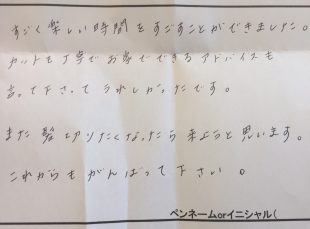 すごく楽しい時間をすごすことができました。
カットも丁寧でお家でできるアドバイスも
言って下さってうれしかったです。
また髪切りたくなったら来ようと思います。
これからもがんばって下さい。
ペンネームorイニシャル(